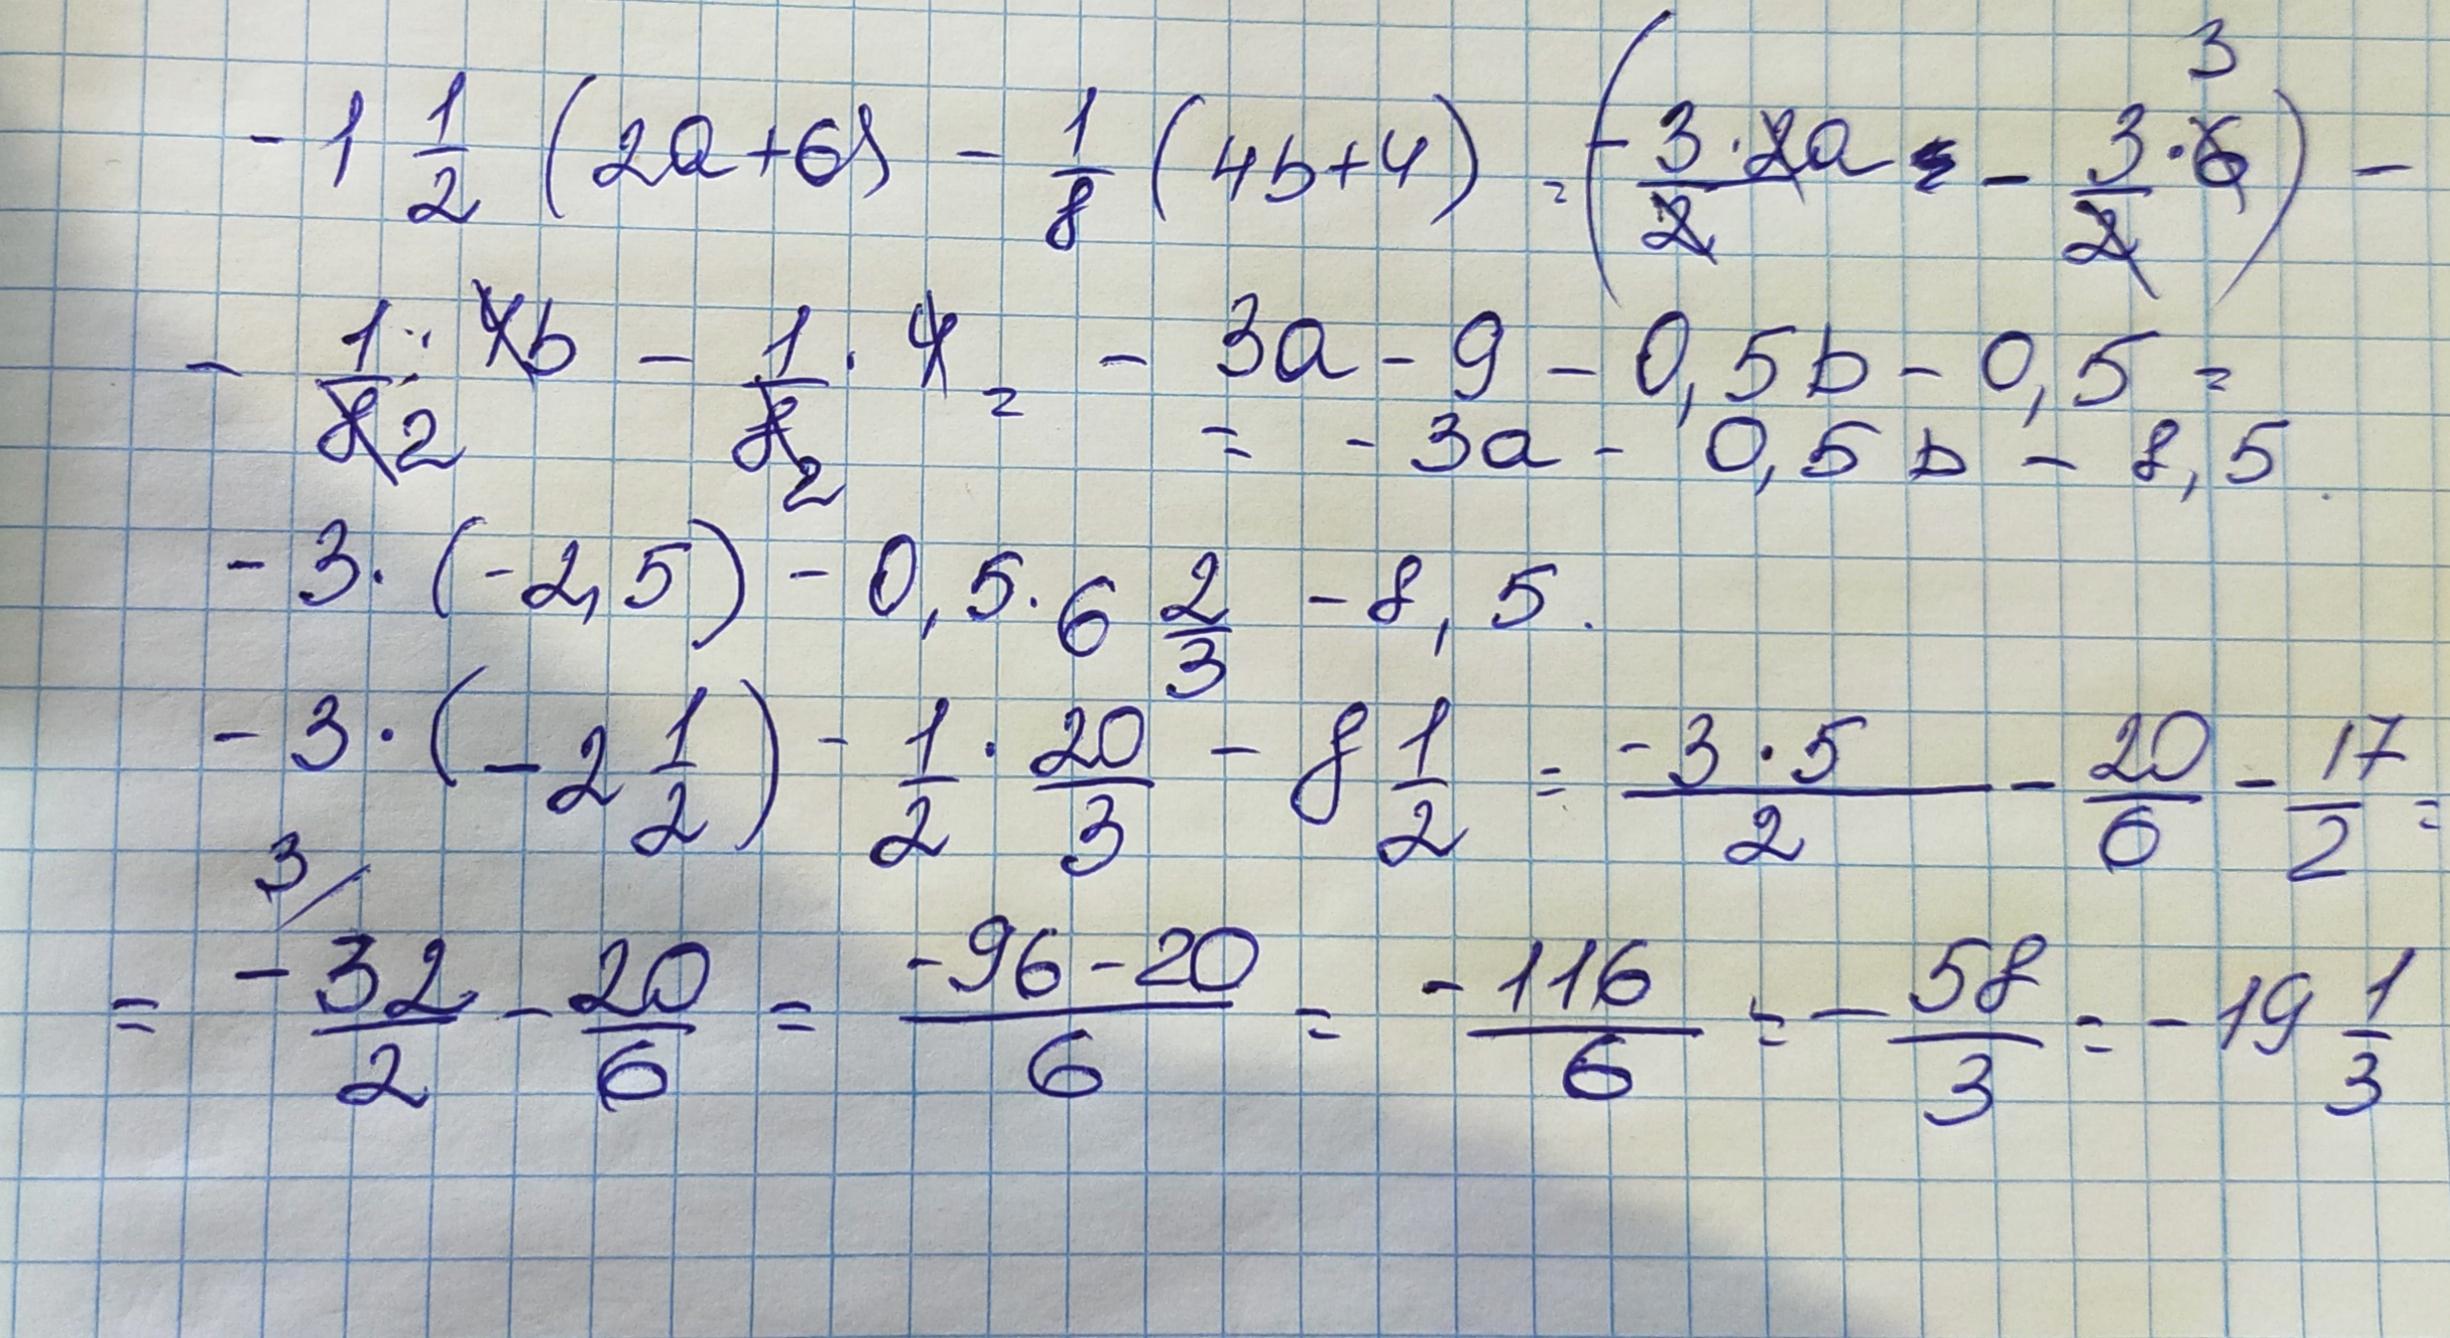 -1 1/2 (2a+6) - 1/8 (4b+4) = (-3·2a/2 - 3/2·6 3) -
- 1/8 2 · 4b - 1/8 2 · 4 = - 3a - 9 - 0,5b - 0,5 =
= - 3a - 0,5b - 8,5.
- 3·(-2,5) - 0,5·6 2/3 - 8,5.
- 3·(-2 1/2) - 1/2 · 20/3 - 8 1/2 = -3·5/2 - 20/6 - 17/2 =
= 3/ -32/2 - 20/6 = -96-20/6 = -116/6 = - 58/3 = -19 1/3